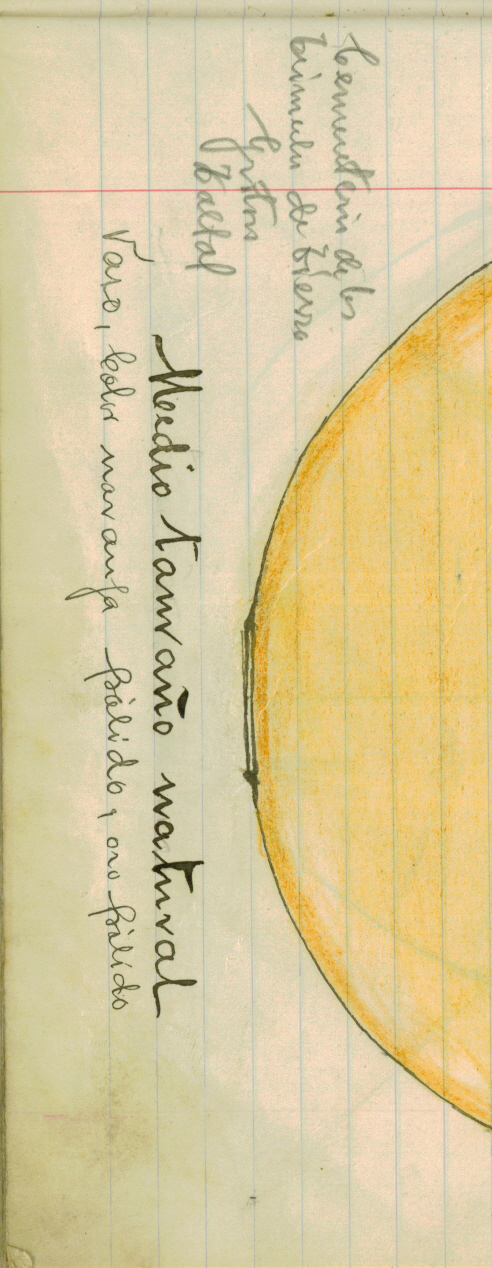 Cementerio de los
túmulos de tierra
Gritón
Taltal
Medio tamaño natural
Vaso, color naranja pálido y oro pálido